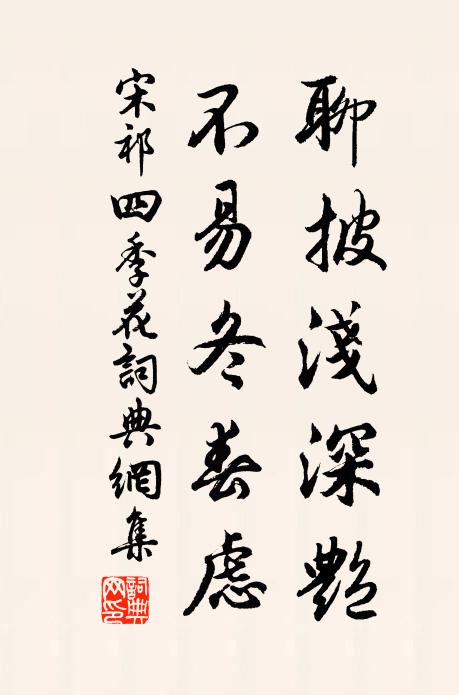 聊披淺深艷
不易冬春慮
宋祁四季花詞典網集
詞典网印